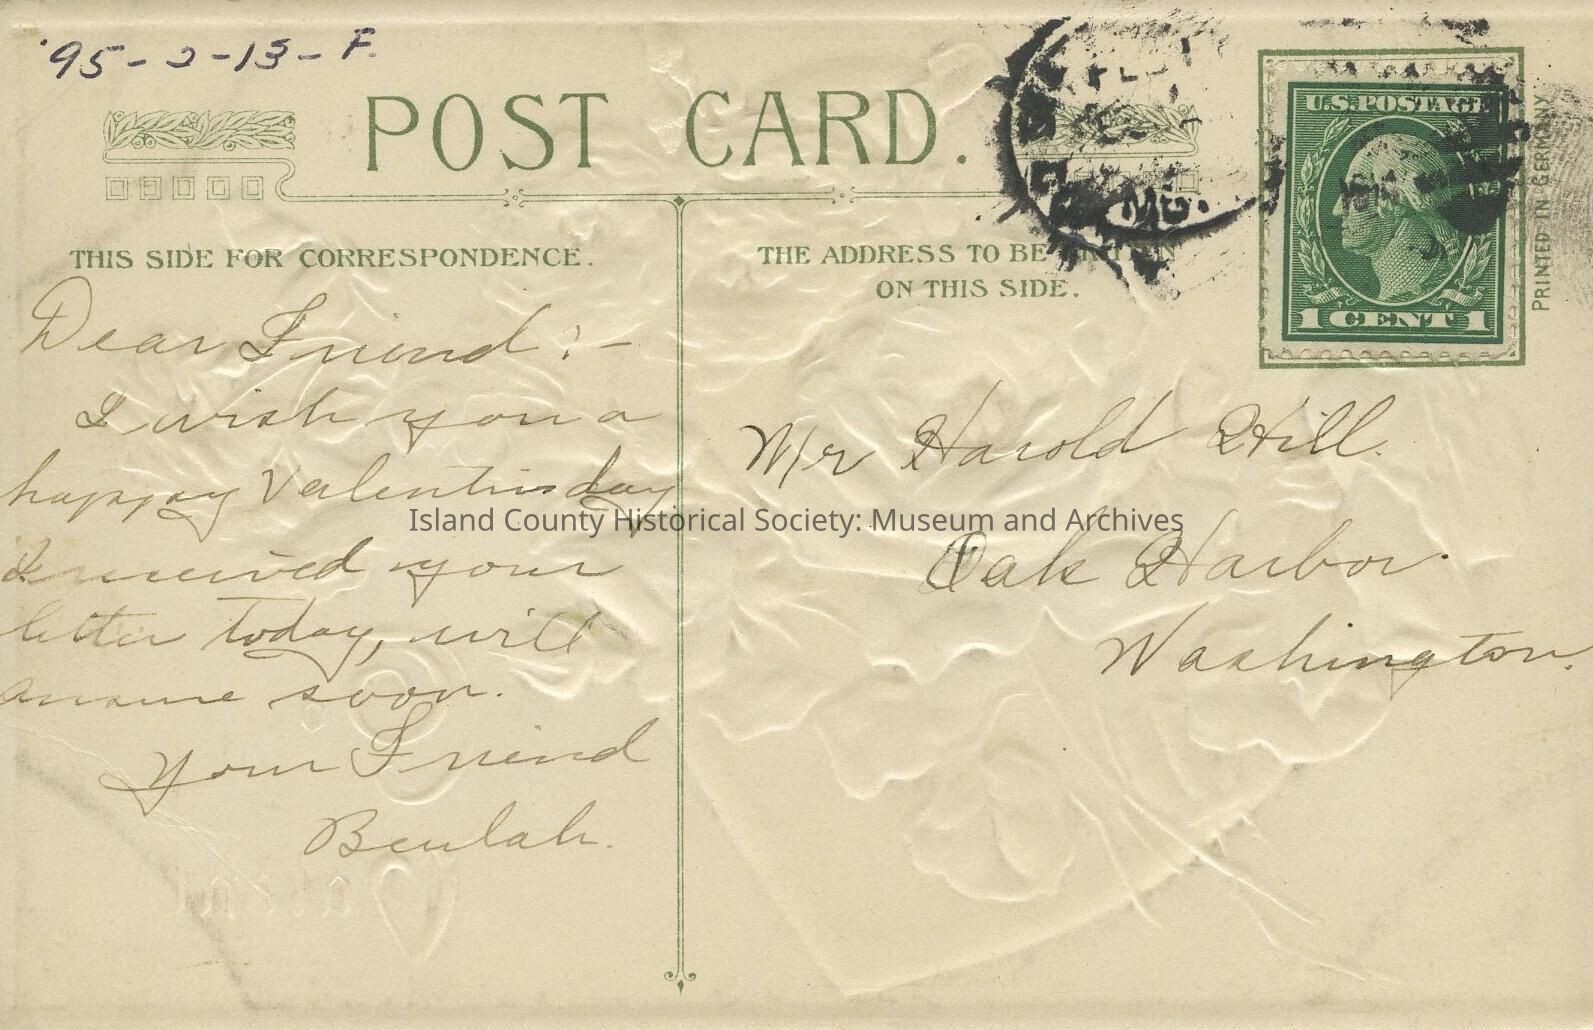 '95-2-13-F.
POST CARD.
THIS SIDE FOR CORRESPONDENCE.
THE ADDRESS TO BE WRITTEN
ON THIS SIDE.
U.S. POSTAGE
1 CENT 1
PRINTED IN GERMANY
MO.
Dear Friend:-
I wish you a
happy Valentins day.
I received your
letter today, will
answe soon.
Your Friend
Beulah.
Mr Harold Hill.
Oak Harbor.
Washington.
Island County Historical Society: Museum and Archives